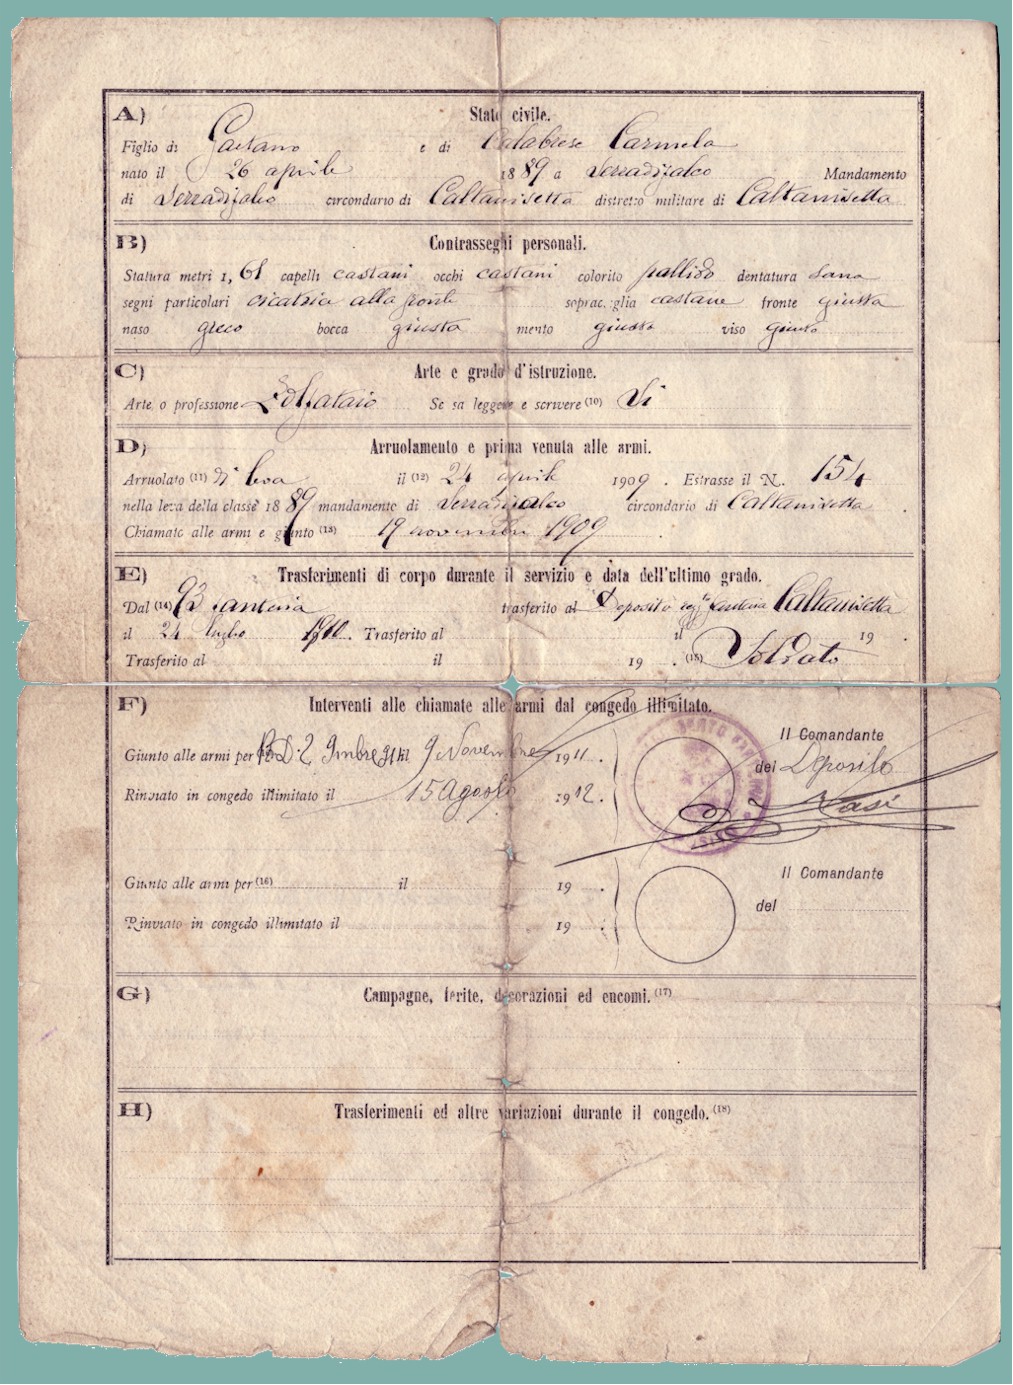 A) Stato civile.
Figlio di Gaetano e di Calabrese Carmela
nato il 26 aprile 1889 a Serradifalco Mandamento
di Serradifalco circondario di Caltanisetta distretto militare di Caltanisetta
B) Contrassegni personali.
Statura metri 1, 61 capelli castani occhi castani colorito pallido dentatura sana
segni particolari cicatrice alla fronte sopracciglia castane fronte giusta
naso greco bocca giusta mento giusto viso giusto
C) Arte e grado d'istruzione.
Arte o professione Zolfataio Se sa leggere e scrivere (10) Si
D) Arruolamento e prima venuta alle armi.
Arruolato (11) di leva il (12) 24 aprile 1909. Estrasse il N. 154
nella leva della classe 1889 mandamento di Serradifalco circondario di Caltanisetta.
Chiamato alle armi e giunto (13) 19 novembre 1909.
E) Trasferimenti di corpo durante il servizio e data dell'ultimo grado.
Dal (14) 93 fanteria trasferito al Deposito fanteria Caltanisetta
il 24 luglio 1910. Trasferito al il 19 .
Trasferito al il 19 . (15) Soldato
F) Interventi alle chiamate alle armi dal congedo illimitato.
Il Comandante
Giunto alle armi per il 9 Novembre 1911. del Deposito
Rinviato in congedo illimitato il 15 Agosto 1912.
Il Comandante
Giunto alle armi per (16) il 19 .
del
Rinviato in congedo illimitato il 19 .
G) Campagne, ferite, decorazioni ed encomi. (17)
H) Trasferimenti ed altre variazioni durante il congedo. (18)